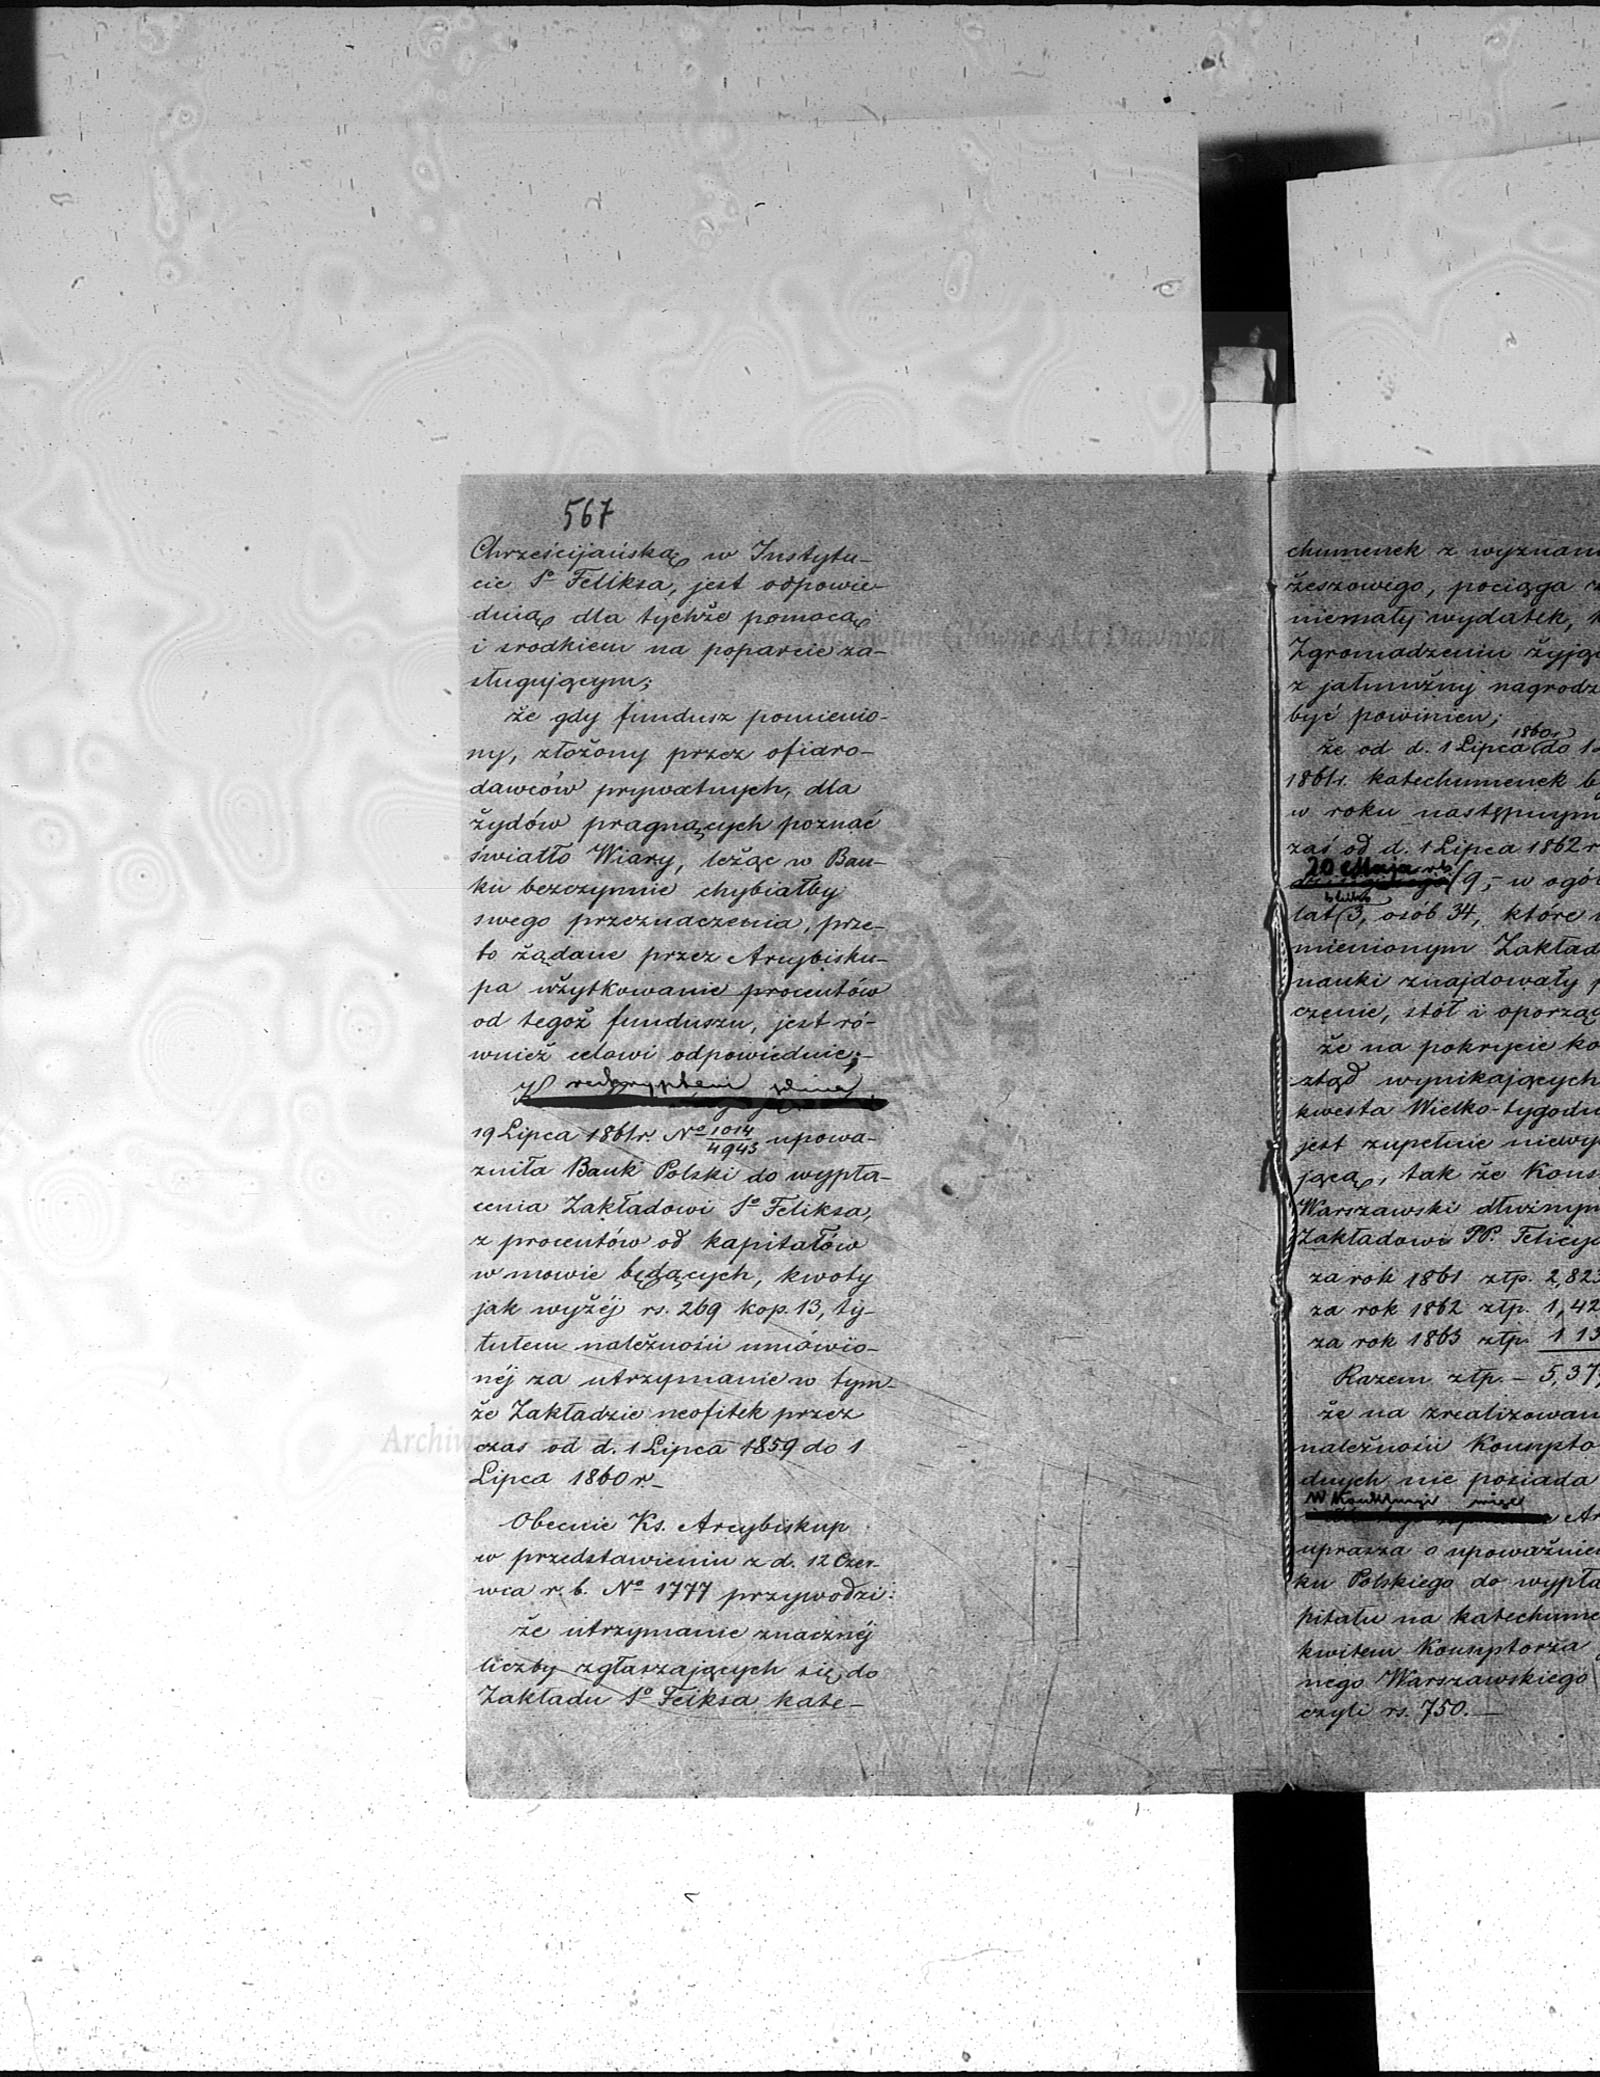 567
Chrześcijańską w Instytu-
cie Sº Feliksa, jest odpowie-
dnią dla tychże pomocą
i srodkiem na poparcie za-
sługującym;
że gdy fundusz pomienio-
ny, złożony przez ofiaro-
dawców prywatnych, dla
żydów pragnących poznać
światło Wiary, leżąc w Ban-
ku bezczynnie chybiałby
swego przeznaczenia, prze-
to żądane przez Arcybisku-
pa użytkowanie procentów
od tegoż funduszu, jest ró-
wnież celowi odpowiednie;-
reskryptem
19 Lipca 1861r. Nº 1014/4943 upowa-
zniła Bank Polski do wypła-
cenia Zakładowi Sº Feliksa,
z procentów od kapitałów
w mowie będących, kwoty
jak wyżéj rs. 269 kop. 13, ty-
tułem należności umówio-
néj za utrzymanie w tym-
że Zakładzie neofitek przez
czas od d. 1 Lipca 1859 do 1
Lipca 1860 r.-
Obecnie Ks. Arcybiskup
w przedstawieniu z d. 12 Czer-
wca r. b. Nº 1777 przywodzi:
że utrzymanie znacznéj
liczby zgłaszających się do
Zakładu Sº Feiksa kate-
chumenek z wyznan
żeszowego, pociąga
niemały wydatek,
Zgromadzeniu żyją
z jałmużny nagrodz
być powinien;
że od d. 1 Lipca 1860r. do 1
1861r. katechumenek b
w roku następnym
zaś od d. 1 Lipca 1862 r
20 Maja r.b. 9,- w ogó
lat 3, osób 34, które
mienionym Zakład
nauki znajdowały p
czenie, stół i oporzą
że na pokrycie ko
ztąd wynikających
kwesta Wielko-tygodn
jest zupełnie niewy
jącą, tak że Kons
Warszawski dłużnym
Zakładowi PP. Felicy
za rok 1861 złp. 2,823
za rok 1862 złp. 1,42
za rok 1863 złp. 1 13
Razem złp. - 5,37
że na zrealizowan
należności Konsysto
dnych nie posiada
W Konkluzyi więc Ar
uprasza o upoważnie
ku Polskiego do wypła
pitału na katechume
kwitem Konsystorza
nego Warszawskiego
czyli rs. 750.-
Archiwum Główne Akt Dawnych